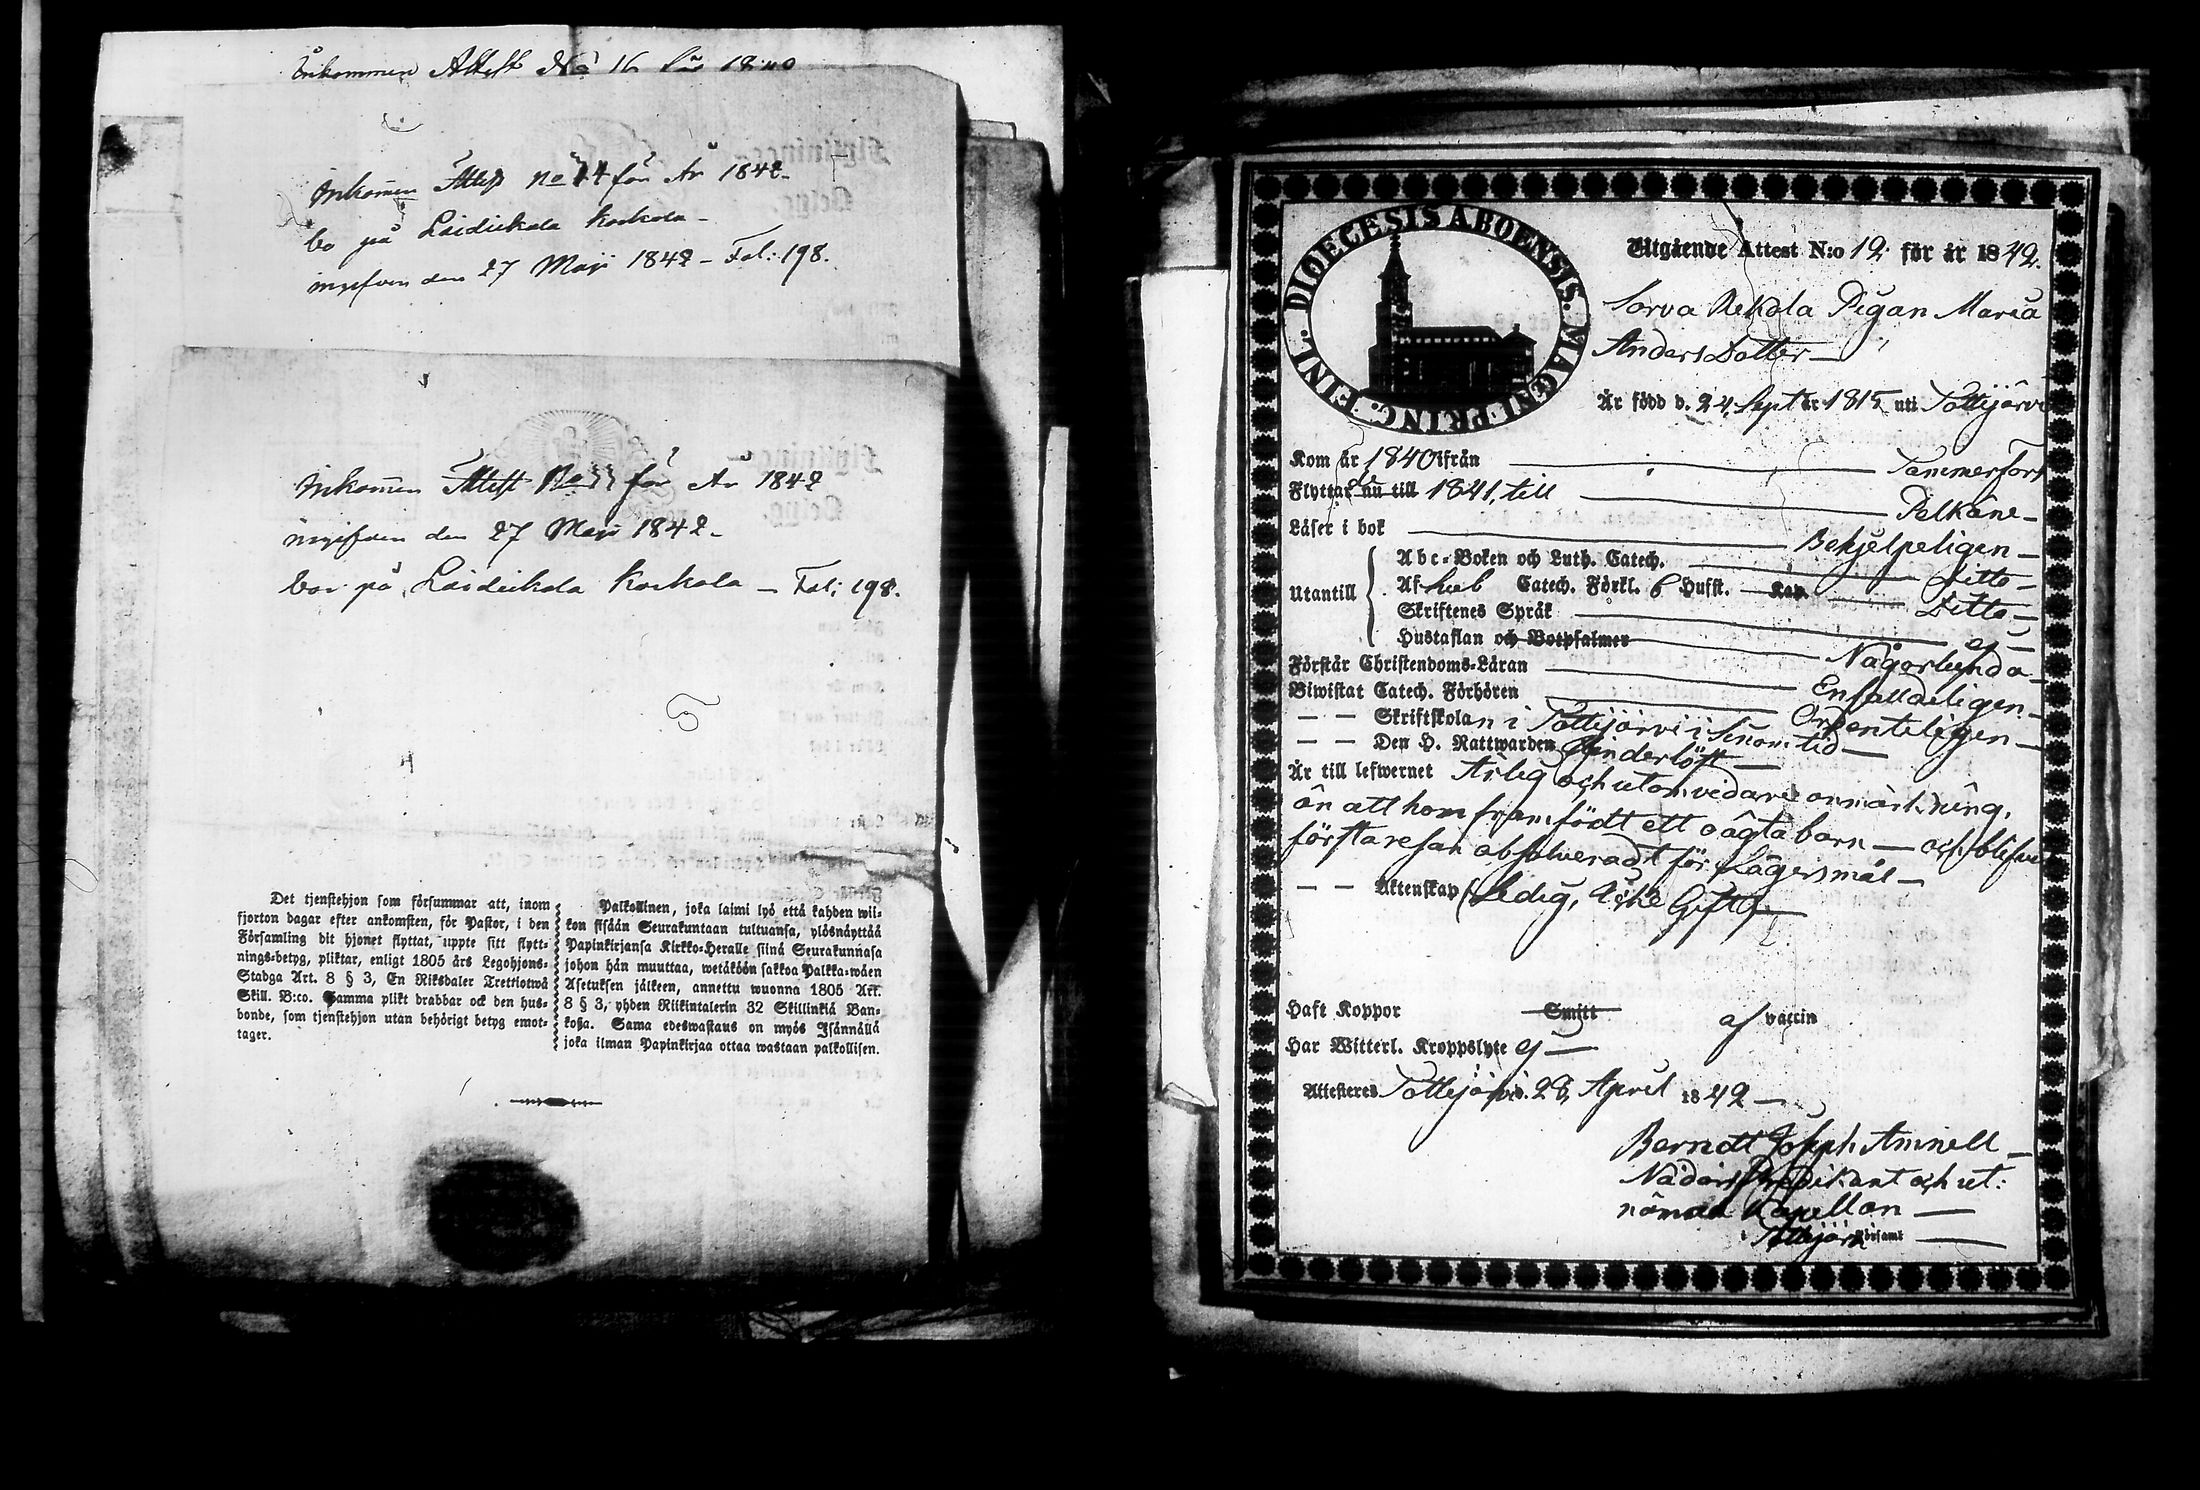 Inkommen Attest No 16 för 1840
Inkom̄en Attest No 74 för År 1842
bo på Laidiekala Korkola
ingifven den 27 Maji 1842 – Fol: 198.
Inkom̄en Attest No för År 1842
ingifven den 27 Maji 1842
bor på Laidiekala Korkola – Fol: 198.
Det tjenstehjon som försummar att, inom
fjorton dagar efter ankomsten, för Pastor, i den
Församling dit hjonet flyttat, uppte sitt flytt-
nings-betyg, pliktar, enligt 1805 års Legohjons-
Stadga Art. 8 § 3, En Riksdaler Trettiotwå
Skill. B:co. Samma plikt drabbar ock den hus-
bonde, som tjenstehjon utan behörigt betyg emot-
tager.
Palkollinen, joka laimi lyö että kahden wii-
kon sisään Seurakuntaan tultuansa, ylösnäyttää
Papinkirjansa Kirkko-Heralle siinä Seurakunnasa
johon hän muuttaa, wetäköön sakkoa Palkka-wäen
Asetuksen jälkeen, annettu wuonna 1805 Art.
8 § 3, yhden Riikintalerin 32 Skillinkiä Ban-
kossa. Sama edeswastaus on myös Isännällä
joka ilman Papinkirjaa ottaa wastaan palkollisen.
DIOECESIS ABOENSIS. MAGNI PRINC. FINL.
Utgående Attest N:o 12 för år 1842.
Sorva Rekola Pigan Maria
Anders Dotter
Är född d. 24 Sept år 1815 uti Tottijärvi
Kom år 1840 ifrån Tammerfors
Flyttar nu till 1841, till Pelkäne
Läser i bok Behjelpeligen
Utantill
Abc-Boken och Luth. Catech. Ditto
Af Catech. Förkl. 6 Hufst. Kap. Ditto
Skriftenes Språk ej
Hustaflan och Botpsalmer Någorlunda
Förstår Christendoms-Läran Enfaldeligen
Biwistat Catech. Förhören Ordenteligen
— — Skriftskolan i Tottijärvi i sinom tid
— — Den H. Nattwarden Hinderlöst
Är till lefwernet Ärlig och utom vidare anmärkning,
än att hon framfödt ett oägta barn — och blifvit
första resan absolverad för Lägersmål
— — Äktenskap Ledig, Icke Gift
Haft Koppor Smitt af vaccin
Har Witterl. Kroppslyte ej
Attesteres Tottijärvi d. 28 April 1842
Berndt Joseph Aminell
Nådårs Predikant och ut-
nämnd Kapellan
i Tottijärvi Församl